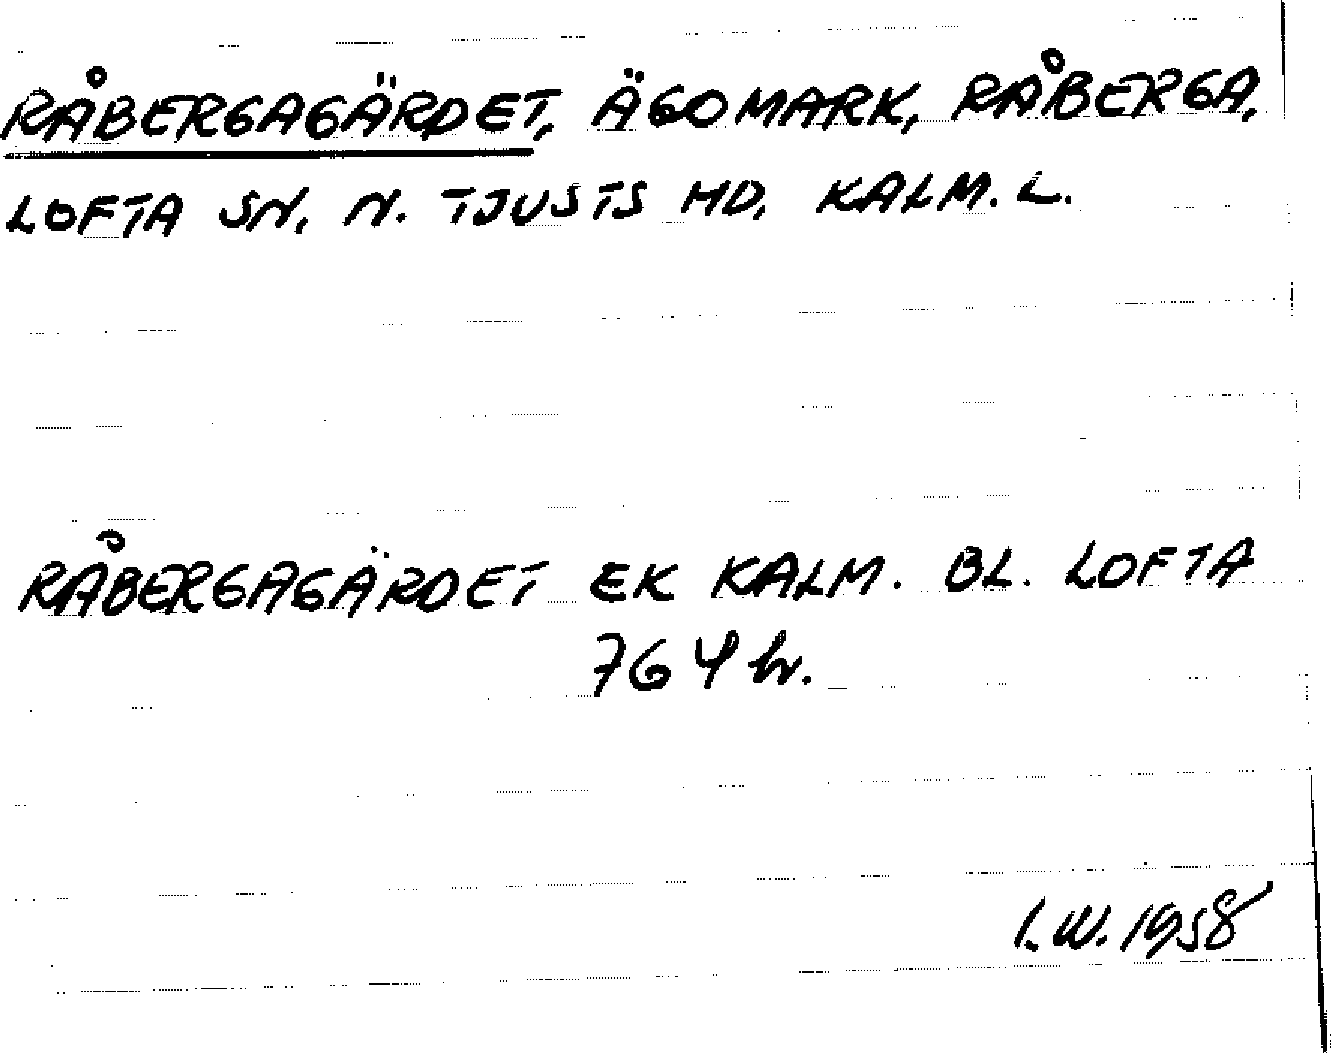 RÅBERGAGÄRDET, ÄGOMARK, RÅBERGA,
LOFTA SN, N. TJUSTS HD, KALM. L.
RÅBERGAGÄRDET EK KALM. BL. LOFTA
764 hr.
I.W. 1958